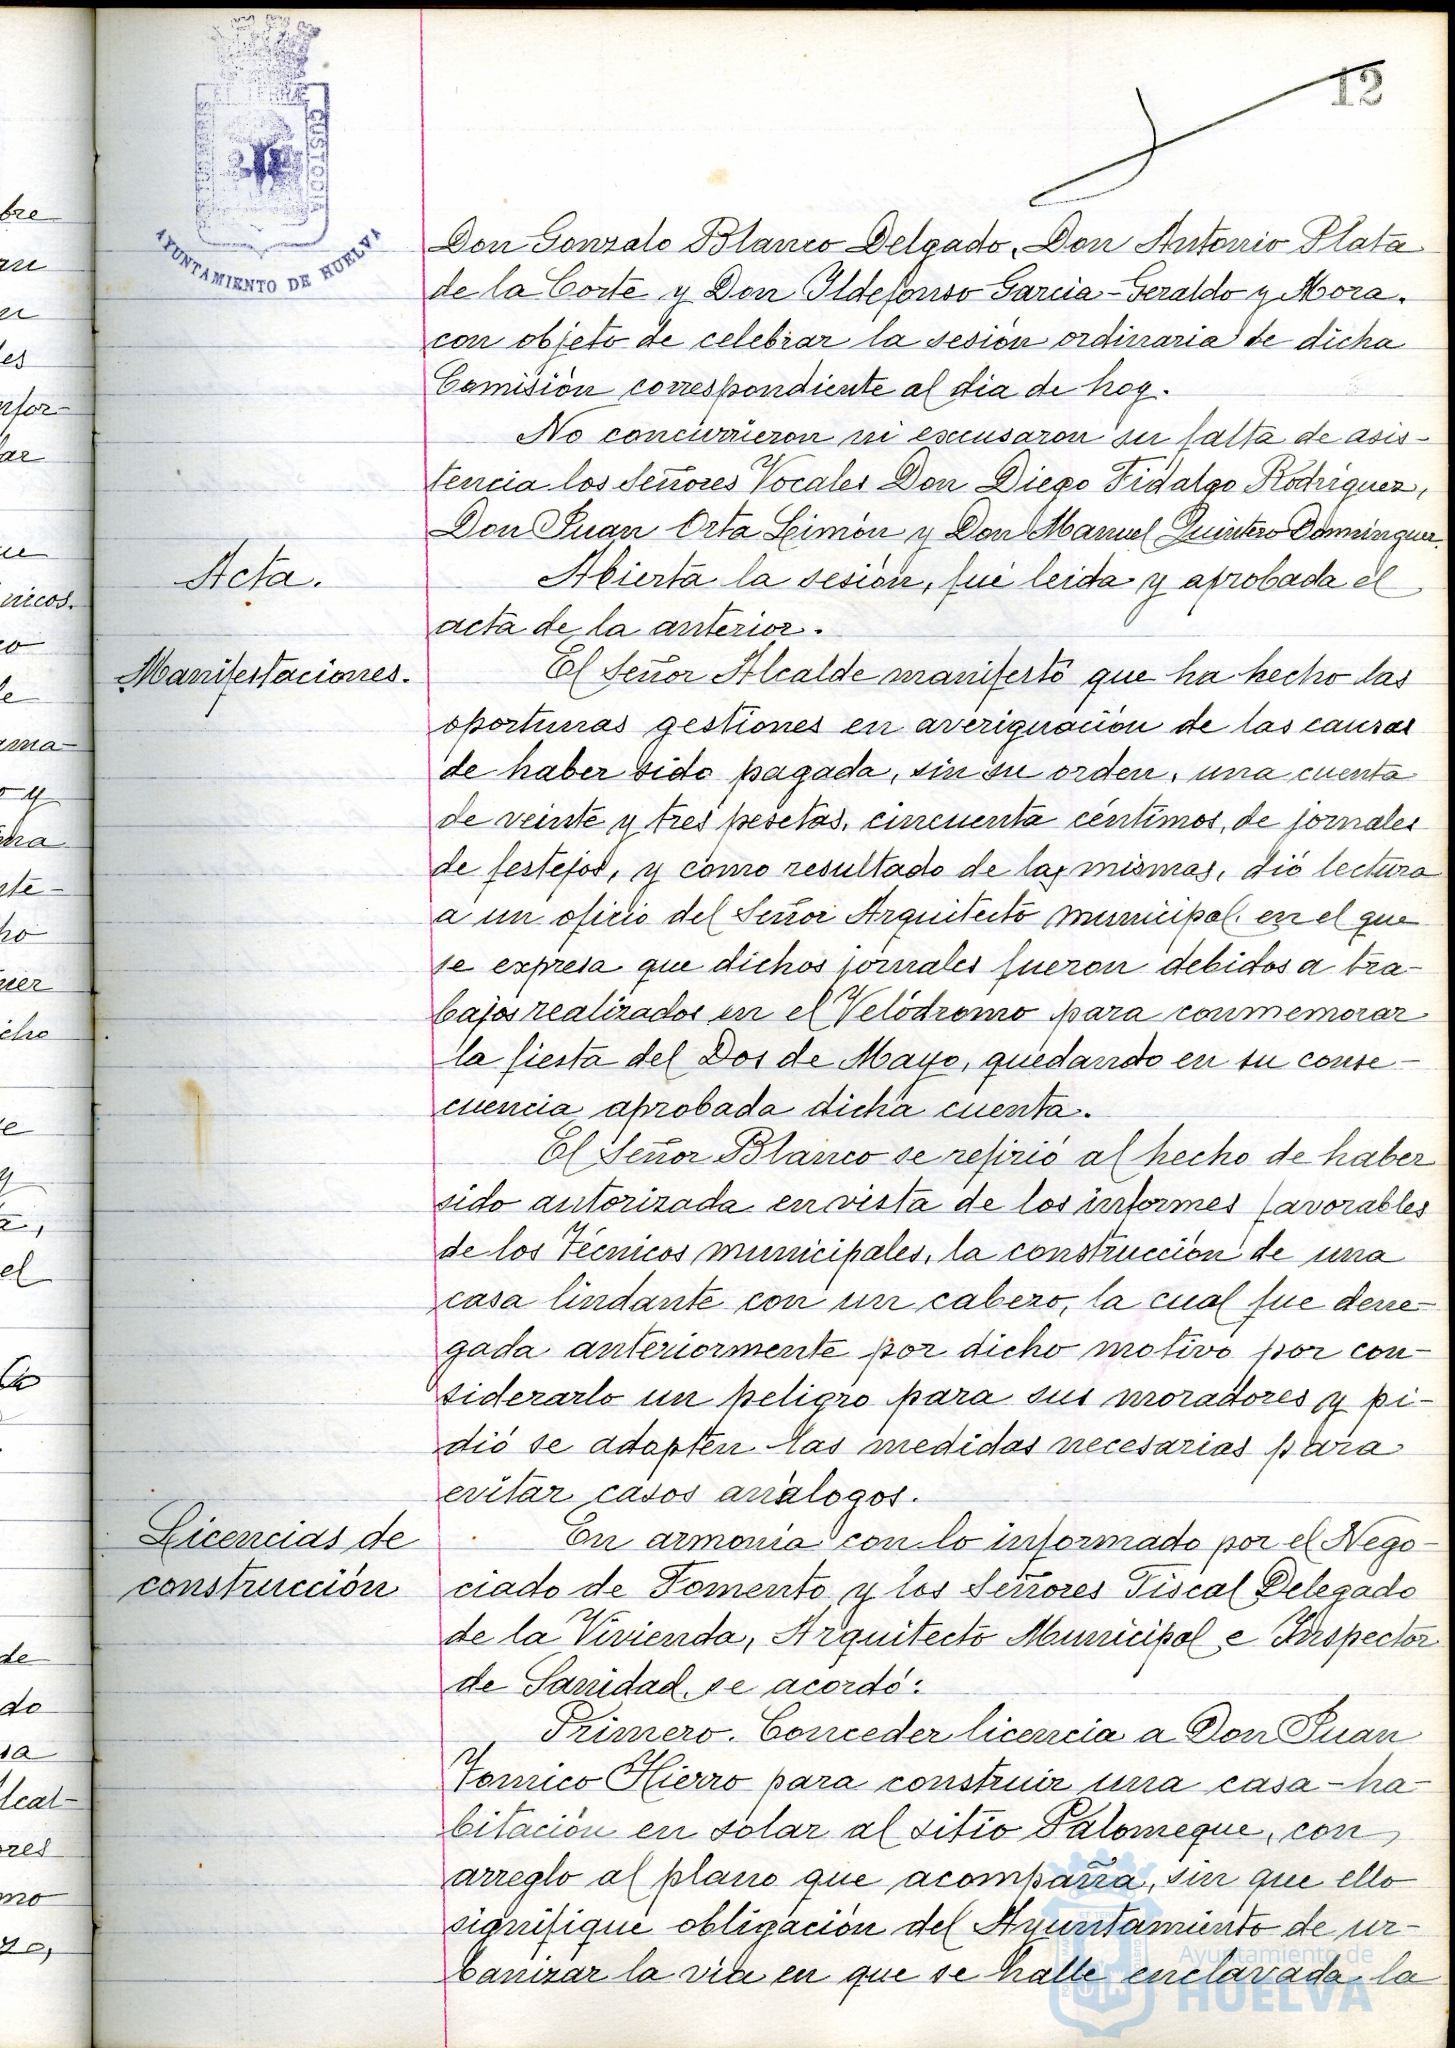 12
PORTUS MARIS ET TERRÆ CUSTODIA
AYUNTAMIENTO DE HUELVA
Don Gonzalo Blanco Delgado, Don Antonio Plata
de la Corte y Don Ildefonso Garcia-Geraldo y Mora.
con objeto de celebrar la sesión ordinaria de dicha
Comisión correspondiente al dia de hoy.
No concurrieron ni excusaron su falta de asis-
tencia los Señores Vocales Don Diego Fidalgo Rodriguez,
Don Juan Orta Limón y Don Manuel Quintero Dominguez.
Acta.
Abierta la sesión, fué leida y aprobada el
acta de la anterior.
Manifestaciones.
El Señor Alcalde manifestó que ha hecho las
oportunas gestiones en averiguación de las causas
de haber sido pagada, sin su orden, una cuenta
de veinte y tres pesetas, cincuenta céntimos, de jornales
de festejos, y como resultado de las mismas, dió lectura
a un oficio del Señor Arquitecto municipal en el que
se expresa que dichos jornales fueron debidos a tra-
bajos realizados en el Velódromo para conmemorar
la fiesta del Dos de Mayo, quedando en su conse-
cuencia aprobada dicha cuenta.
El Señor Blanco se refirió al hecho de haber
sido autorizada en vista de los informes favorables
de los Técnicos municipales, la construcción de una
casa lindante con un cabezo, la cual fue dene-
gada anteriormente por dicho motivo por con-
siderarlo un peligro para sus moradores y pi-
dió se adopten las medidas necesarias para
evitar casos análogos.
Licencias de
construcción
En armonia con lo informado por el Nego-
ciado de Fomento y los Señores Fiscal Delegado
de la Vivienda, Arquitecto Municipal e Inspector
de Sanidad se acordó:
Primero. Conceder licencia a Don Juan
Tomico Hierro para construir una casa-ha-
bitación en solar al sitio Palomeque, con
arreglo al plano que acompaña, sin que ello
signifique obligación del Ayuntamiento de ur-
banizar la via en que se halle enclavada la
Ayuntamiento de
HUELVA